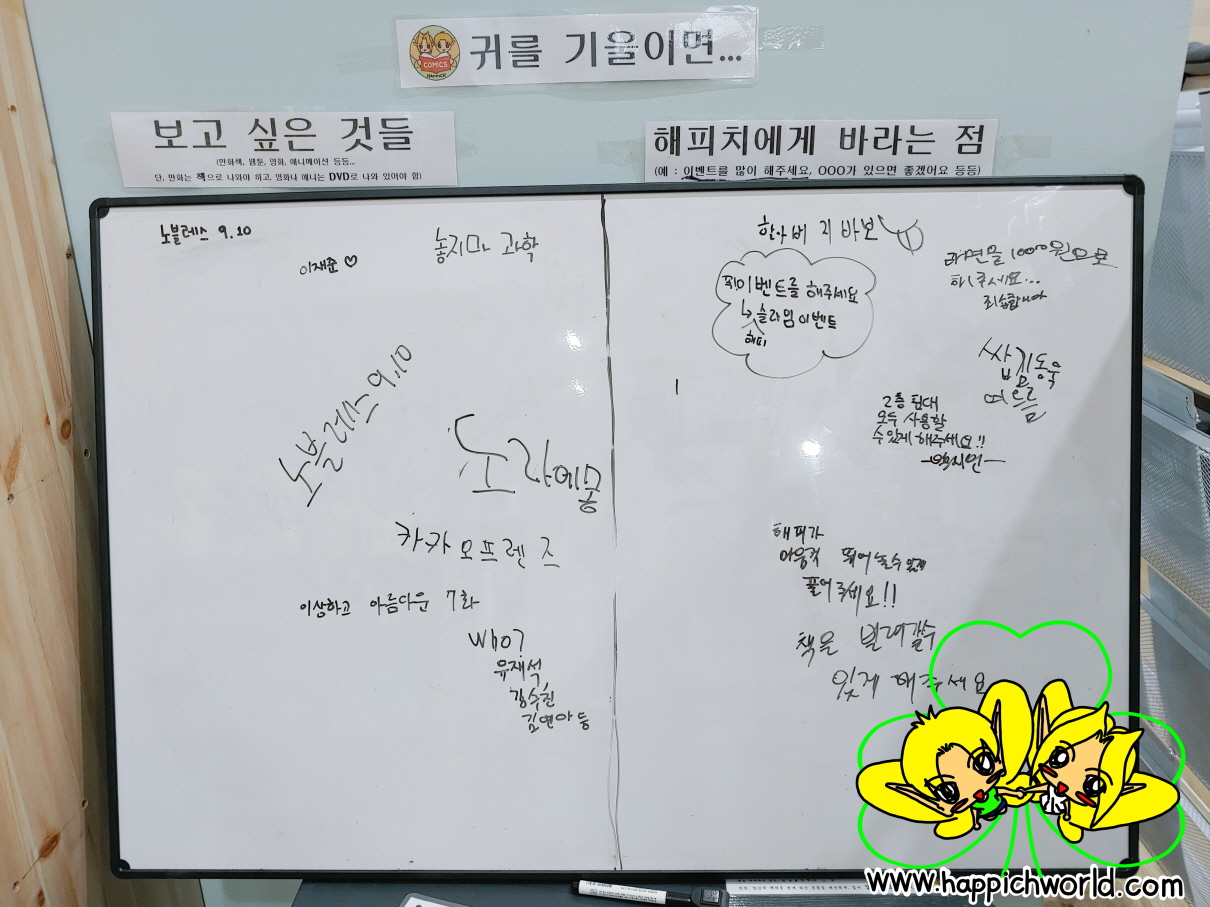 COMICS
HAPPICH
귀를 기울이면...
보고 싶은 것들
(만화책, 웹툰, 영화, 애니메이션 등등...
단, 만화는 책으로 나와야 하고, 영화나 애니는 DVD로 나와 있어야 함)
해피치에게 바라는 점
(예 : 이벤트를 많이 해주세요, OOO가 있으면 좋겠어요 등등)
노블레스 9.10
이재준♡
놓지마 과학
노블레스 9.10
도라에몽
카카오프렌즈
이상하고 아름다운 7화
Who?
유재석
강수진
김연아 등
할아버지 바보
찍이벤트를 해주세요
↳슬라임 이벤트
해피
라면을 1000원으로
해주세요...
죄송합니다
김동욱
여드름
2층 침대
모두 사용할
수있게 해주세요!!
해피가
뛰어 놀수 있게
풀어 주세요!!
책을 빌려갈수
있게 해주세요
www.happichworld.com